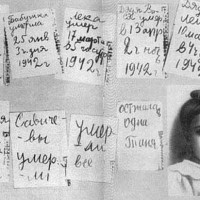 Бабушка
умерла
25 янв
3 ч дня
1942 г
Лека
умер
17 марта
в 5 часов
1942 г
Дядя
умер
в 13 апр
2 ч ноч
1942 г
Дядя
10 мая
в 4 ч
194
Савиче-
вы
умер-
ли
Умер
ли
все
остала
одна
Таня